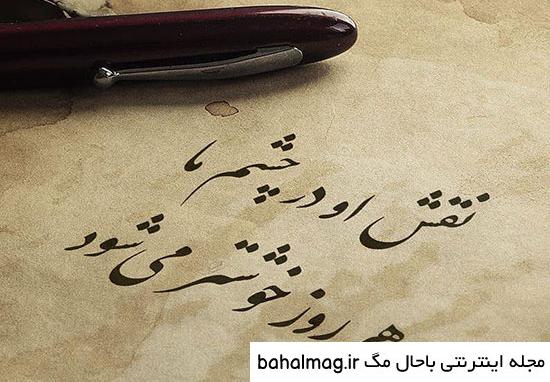 نقش او در چشم ما
هر روز خوشتر می شود
مجله اینترنتی باحال مگ bahalmag.ir